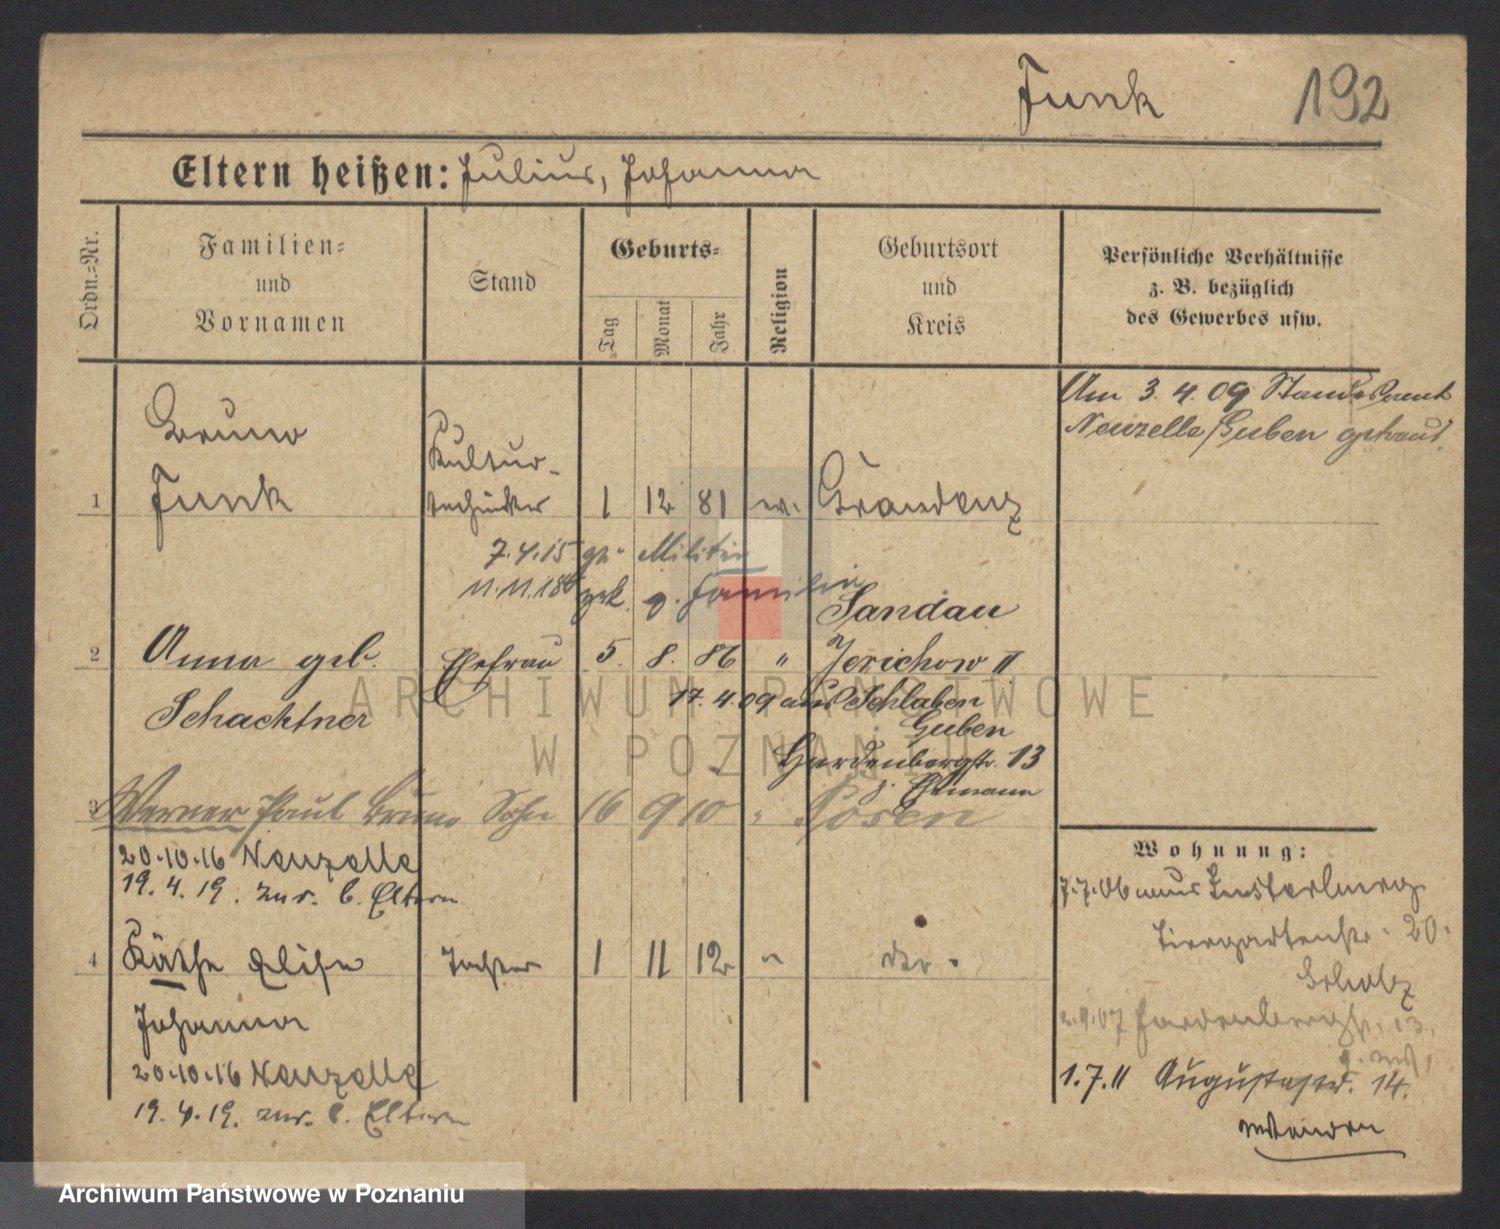 Funk 192
Eltern heißen: Julius, Johanna
Ordn.-Nr.
Familien-
und
Vornamen
Stand
Geburts-
Tag
Monat
Jahr
Religion
Geburtsort
und
Kreis
Persönliche Verhältnisse
z. B. bezüglich
des Gewerbes usw.
Am 3. 4. 09 Standesamt
Neuzelle/Guben getraut.
Bruno
Kultur-
1 Funk techniker 1 12 81 ev. Graudenz
7.4.15 Militär
11.11.18 zck. z. Familie
Sandau
2 Anna geb. Ehefrau 5. 8. 86 " Jerichow II
Schachtner
17. 4. 09 aus Schlaben
Guben
Hardenbergstr. 13
z. Ehemann
3 Werner Paul Bruno Sohn 16 9 10 " Posen
20.10.16 Neuzelle
19. 4. 19. zur. b. Eltern
4 Käthe Elise Tochter 1 11 12 " do.
Johanna
20.10.16 Neuzelle
19. 4. 19. zur. b. Eltern
Wohnung:
7.7.06 aus Insterburg
Tiergartenstr. 20.
Scholz
07 Hardenbergstr. 13.
1.7.11 Augustastr. 14.
ARCHIWUM PAŃSTWOWE
W POZNANIU
Archiwum Państwowe w Poznaniu